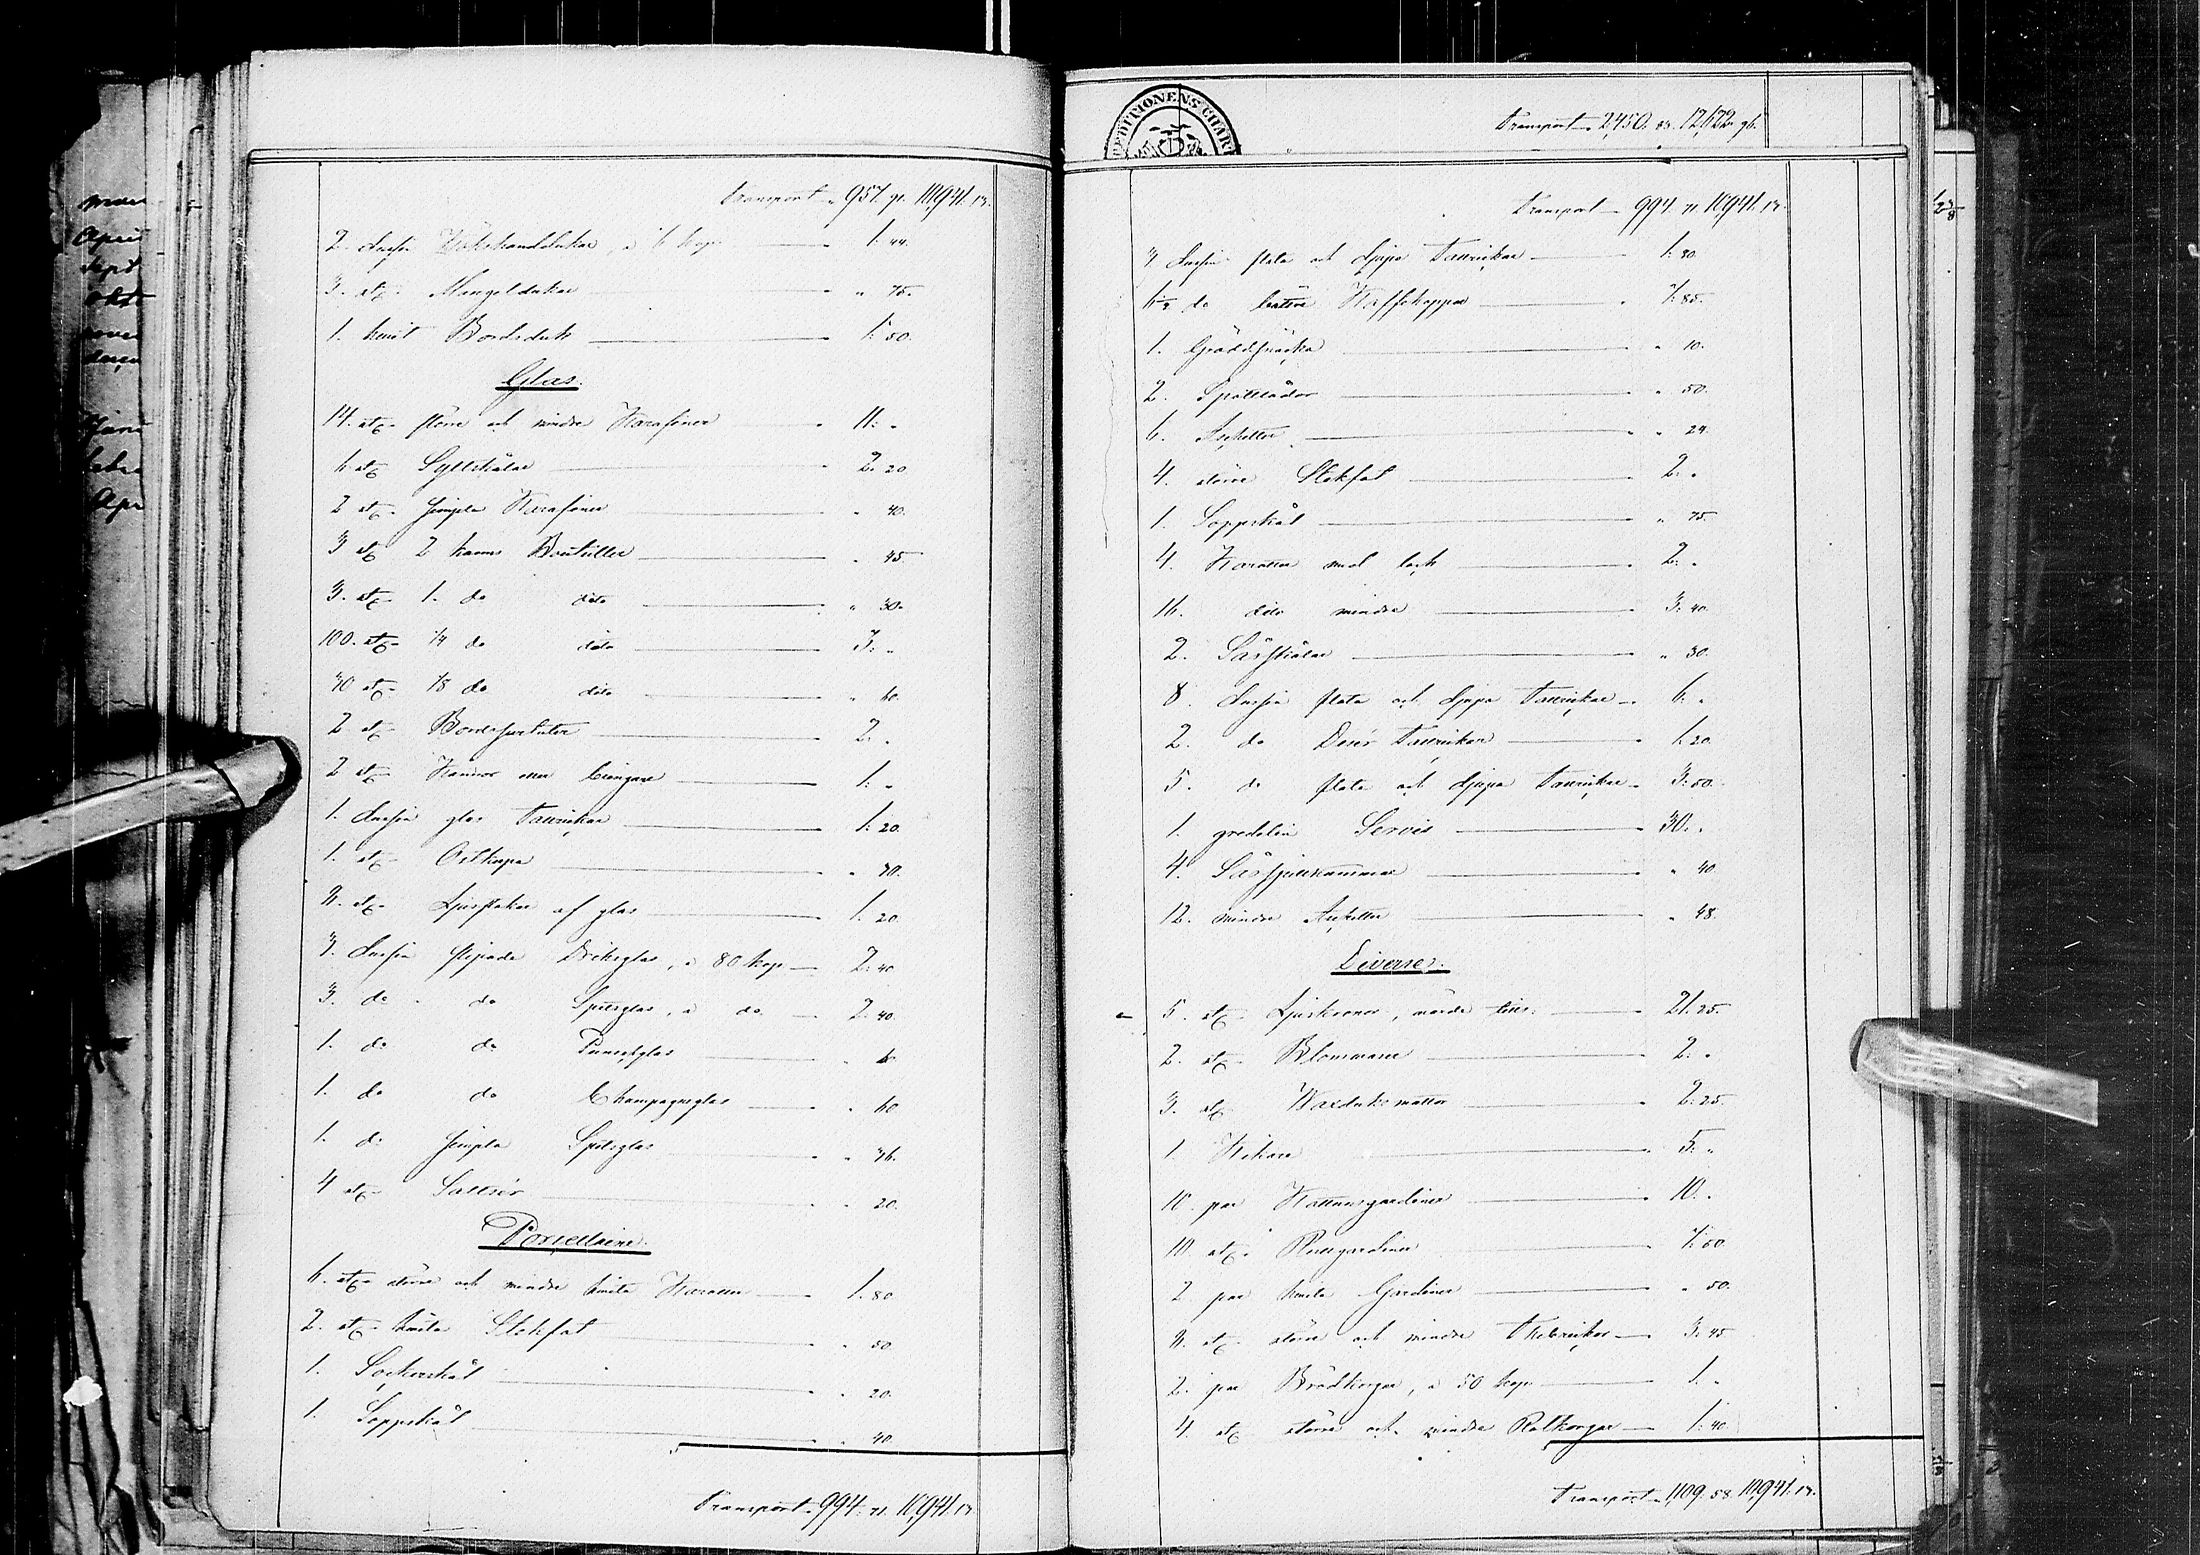 Transport 957. 91. 10,941. 13.
2. dussin Kökshanddukar, à 6 kop 1: 44.
3. st. Mangeldukar " 75.
1. hvit Bordsduk 1: 50.
Glas.
14. st. större och mindre Karafiner 11: "
6 st. Syltskålar 2: 20
2 st. simpla Karafiner " 40.
3 st. 2 kanns Bouteiller " 45
3. st. 1. do dito " 30.
100. st. 1/4 do dito 3: "
30 st. 1/8 do dito " 60.
2 st. Bordssurtuter 2: "
2 st. Kannor 1: "
1. dussin glas Tallrickar 1: 20.
1. st. Ostkupa " 30.
st. Ljusstakar af glas 1: 20.
3. dussin slipade Dricksglas, à 80 kop 2: 40
3. do do Spitsglas, à do. 2: 40.
1. do do Punschglas " 60
1. do do Champagneglas " 60
1. do simpla Spitsglas " 36.
4 st. Saltkör " 20.
Porcellaine.
6. st. större och mindre hvita Karotter 1. 80
2. st. hvita Stekfat " 50
1. Sockerskål " 20.
1. Soppskål " 40.
Transport 994. 71. 10,941. 13
FEDITIONENS CHART
Transport 2,450. 83. 12,672. 96.
Transport 994. 71. 10,941. 13.
dussin flata och djupa Tallrickar 1: 80.
6 1/2 do bättre Kaffekoppar 7: 85.
1. Gräddsnäcka " 10.
2. Spottlådor " 50.
6. Aschetter " 24.
4. större Stekfat 2: "
1. Soppskål " 75.
4. Karotter med lock 2: "
16. dito mindre 3: 40.
2. Såsskålar " 30.
8. dussin flata och djupa Tallrickar 6: "
2. do Desér Tallrickar 1: 20.
5. do flata och djupa Tallrickar 3: 50.
1. gredelin Servis 30: "
4. Såssnipkannor " 40.
12. mindre Aschetter " 48.
Diverse.
5. st. Ljuskronor, 21. 25.
2. st. Blomvaser 2: "
3. st. Waxduksmattor 2: 25.
1. Kikare 5: "
10 par Kattunsgardiner 10: "
10. st. Rullgardiner 7: 50.
2 par hvita Gardiner " 50.
st. större och mindre Thebrickor 3: 45
2. par Brödkorgar, à 50 kop 1: "
4. st. större och mindre Rotkorgar 1: 40
Transport 1,109. 58. 10,941. 13.